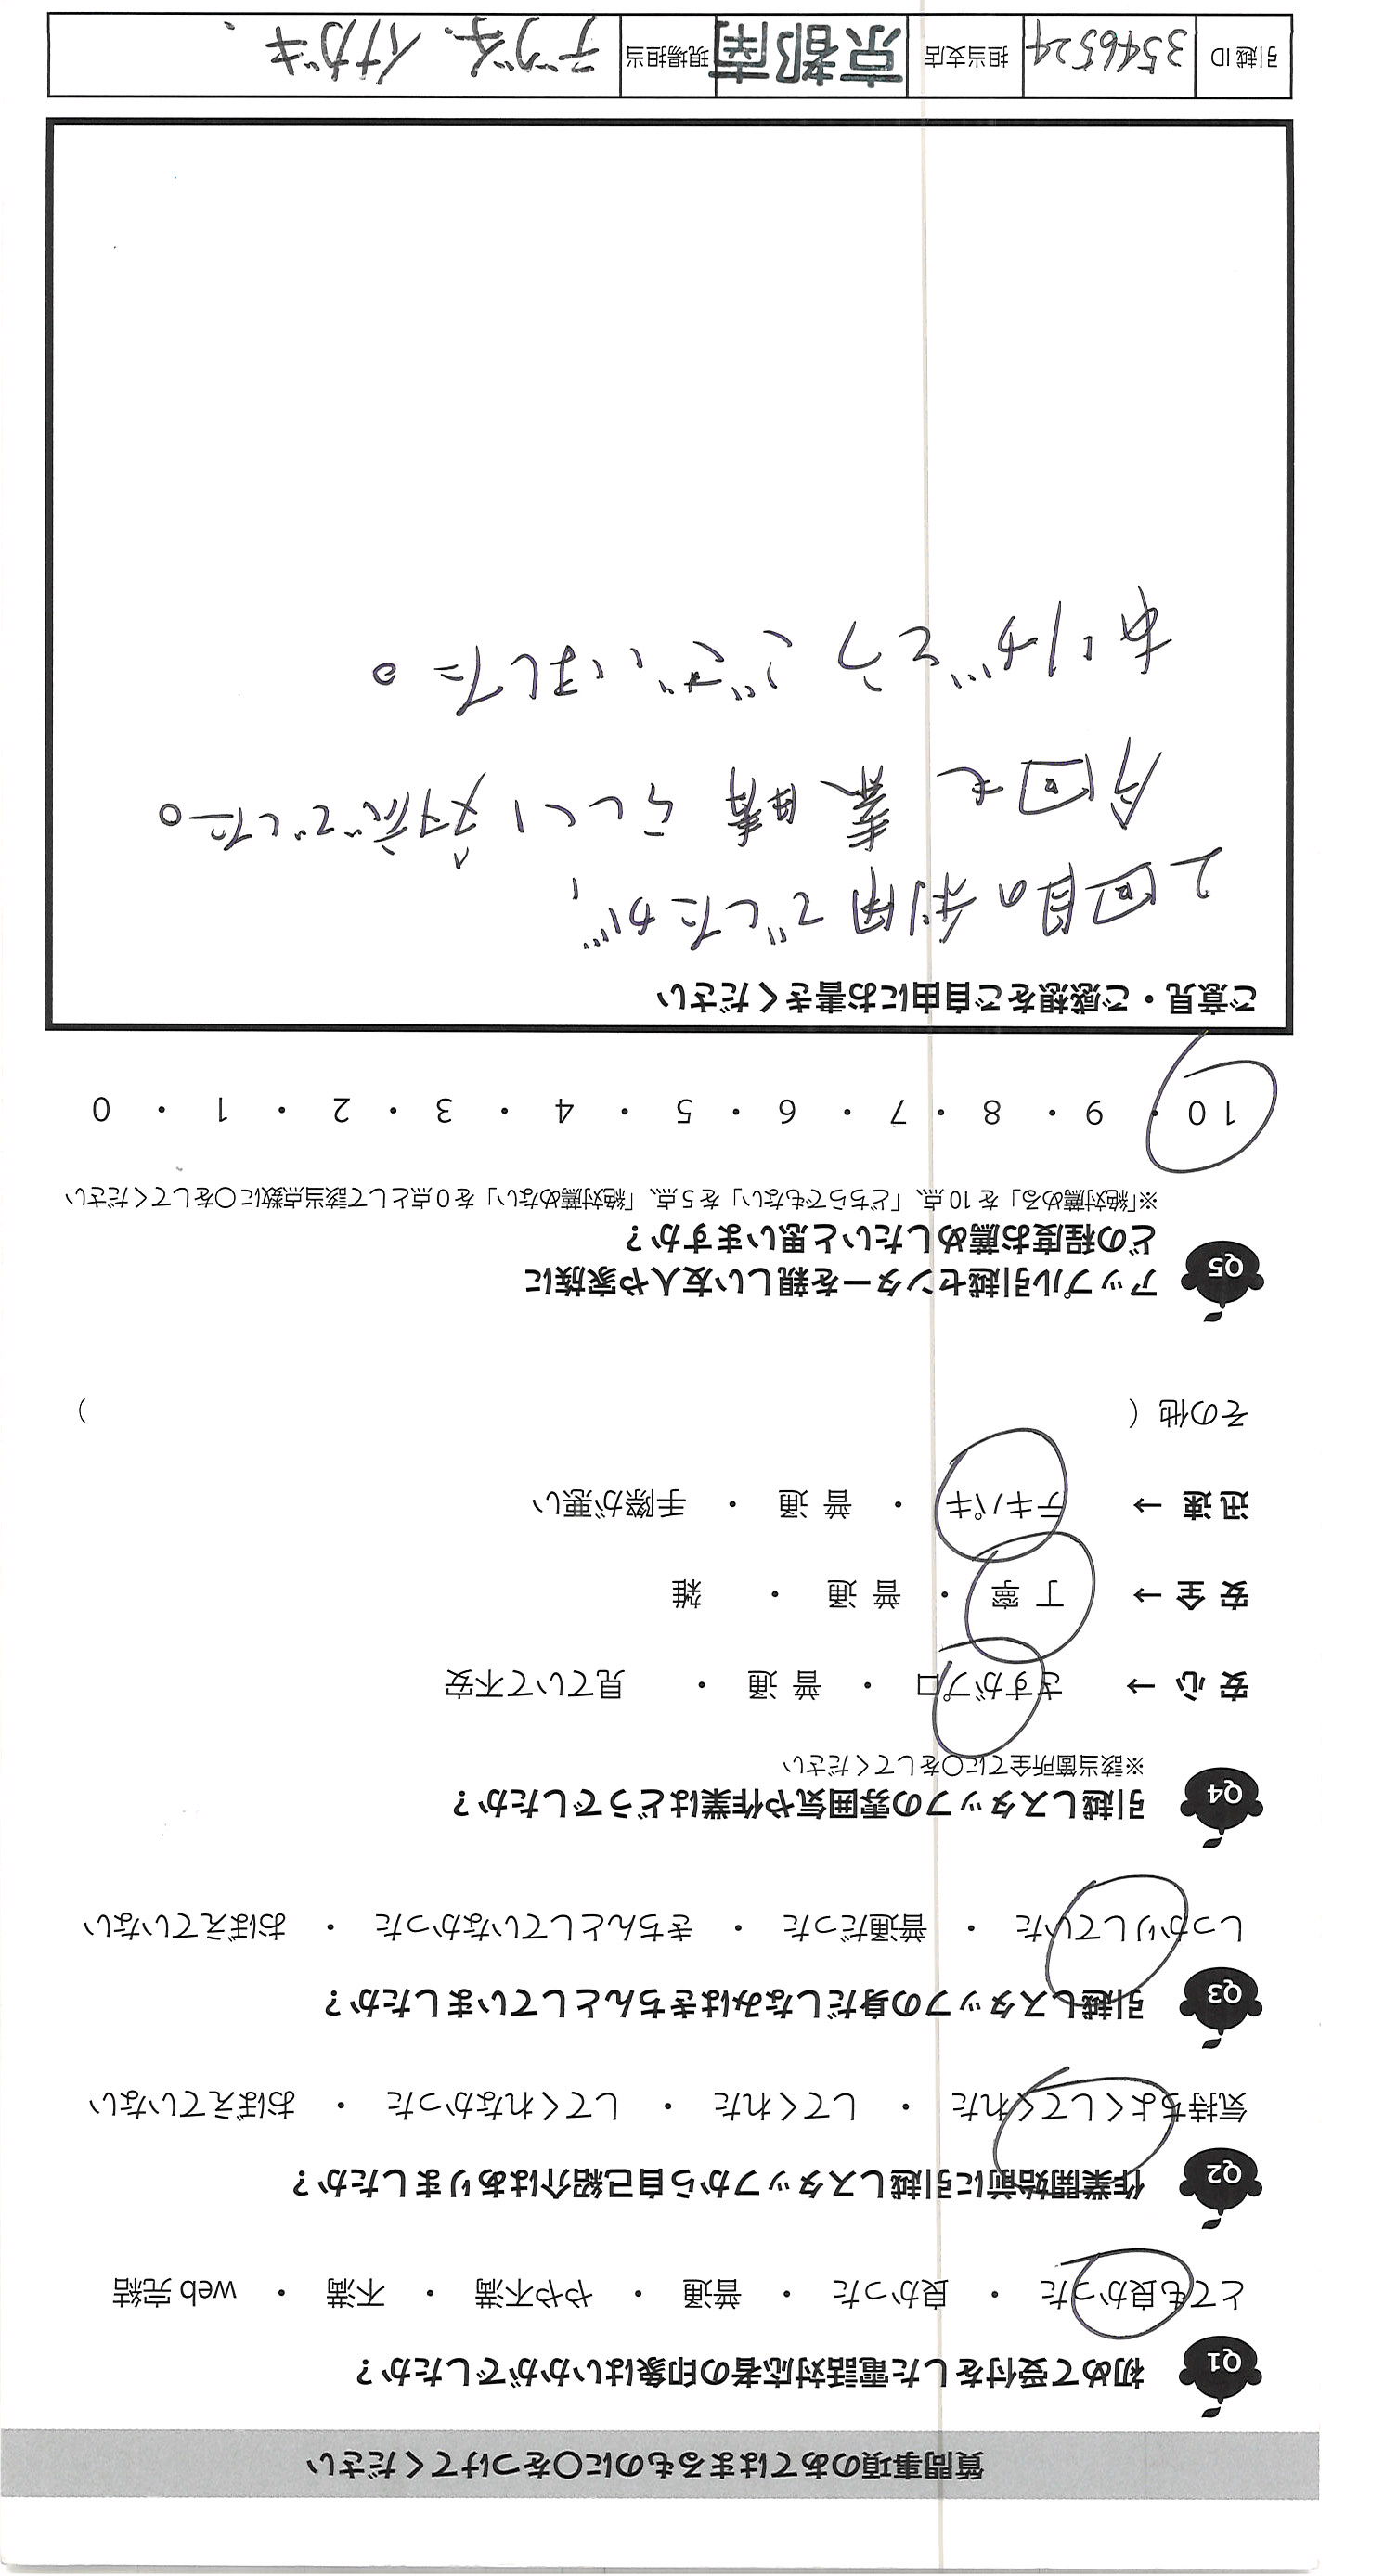 質問事項のあてはまるものに○をつけてください
Q1 初めて受付をした電話対応者の印象はいかがでしたか？
とても良かった ・ 良かった ・ 普通 ・ やや不満 ・ 不満 ・ web 完結
Q2 作業開始前に引越しスタッフから自己紹介はありましたか？
気持ちよくしてくれた ・ してくれた ・ してくれなかった ・ おぼえていない
Q3 引越しスタッフの身だしなみはきちんとしていましたか？
しっかりしていた ・ 普通だった ・ きちんとしていなかった ・ おぼえていない
Q4 引越しスタッフの雰囲気や作業はどうでしたか？
※該当箇所全てに○をしてください
安 心 → さすがプロ ・ 普 通 ・ 見ていて不安
安 全 → 丁 寧 ・ 普 通 ・ 雑
迅 速 → テキパキ ・ 普 通 ・ 手際が悪い
その他（ ）
Q5 アップル引越センターを親しい友人や家族に
どの程度お薦めしたいと思いますか？
※「絶対薦める」を 10 点、「どちらでもない」を 5 点、「絶対薦めない」を 0 点として該当点数に○をしてください
10 ・ 9 ・ 8 ・ 7 ・ 6 ・ 5 ・ 4 ・ 3 ・ 2 ・ 1 ・ 0
ご意見・ご感想をご自由にお書きください
2回目の利用でしたが、
今回も素晴らしい対応でした。
ありがとうございました。
引越 ID 3546524 担当支店 京都南 現場担当 イナガキ